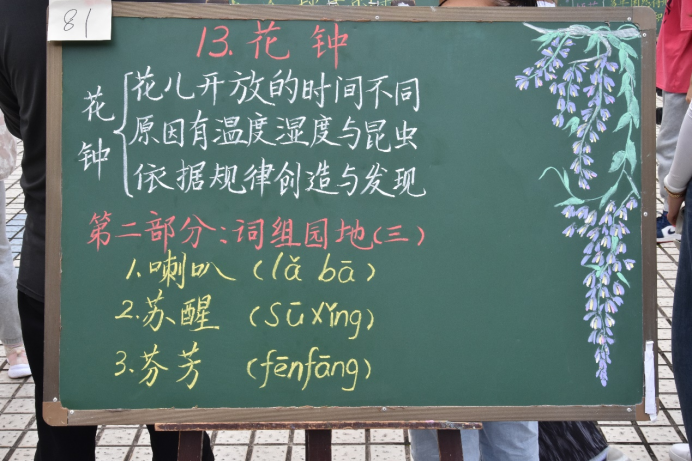 81
13.花钟
花钟
花儿开放的时间不同
原因有温度湿度与昆虫
依据规律创造与发现
第二部分:词组园地(三)
1.喇叭 (lǎ bā)
2.苏醒 (sūxǐng)
3.芬芳 (fēnfāng)